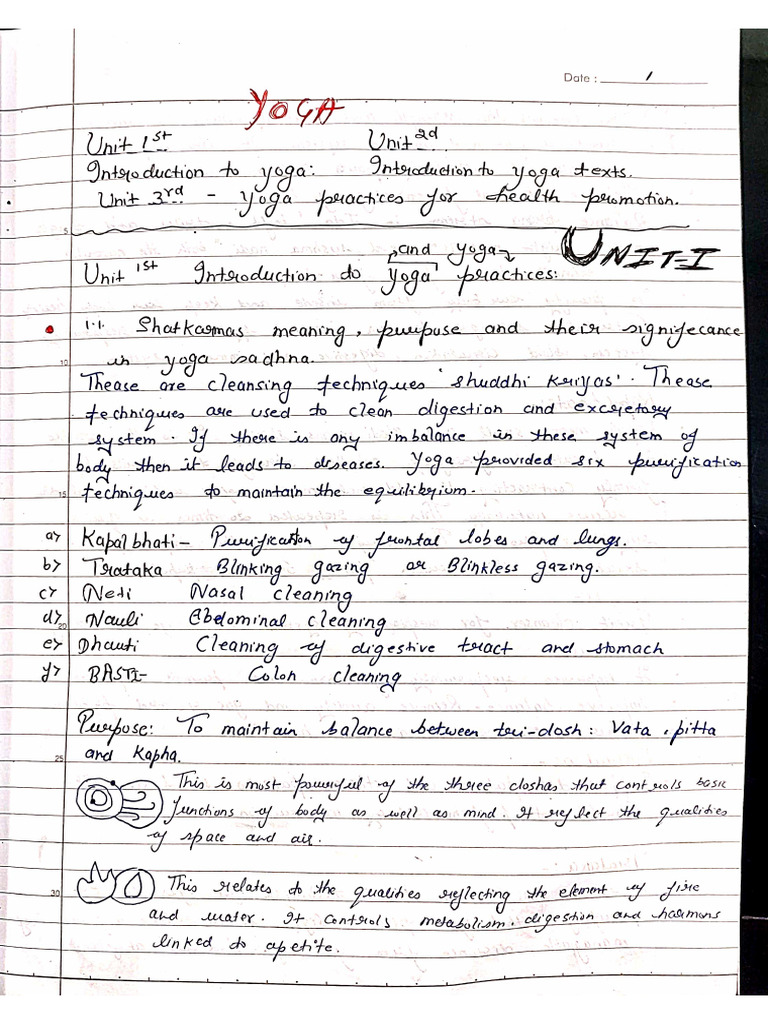 Date : 1
YOGA
Unit 1st Unit 2d
Introduction to yoga: Introduction to yoga texts.
Unit 3rd - Yoga practices for health promotion.
5
UNIT-I
and yoga
Unit 1st Introduction do yoga practices:
1.1. Shatkarmas meaning, purpose and their signifecance
10
in yoga sadhna.
Thease are cleansing techniques 'Shuddhi Kriyas'. Thease
techniques are used to clean digestion and excretary
system. If there is any imbalance in these system of
body then it leads to diseases. Yoga provided six purification
15
techniques to maintain the equilibrium.
a) Kapalbhati - Purification of frontal lobes and lungs.
b) Trataka Blinking gazing or Blinkless gazing.
c) Neti Nasal cleaning
d) Nauli Abdominal cleaning
20
e) Dhauti Cleaning of digestive tract and stomach
f) BASTI- Colon cleaning
Purpose: To maintain balance between tri-dosh: Vata, pitta
25
and Kapha.
This is most powerful of the three doshas that controls basic
functions of body as well as mind. It reflect the qualities
of space and air.
30
This relates to the qualities reflecting the element of fire
and water. It controls metabolism, digestion and harmons
linked to apetite.